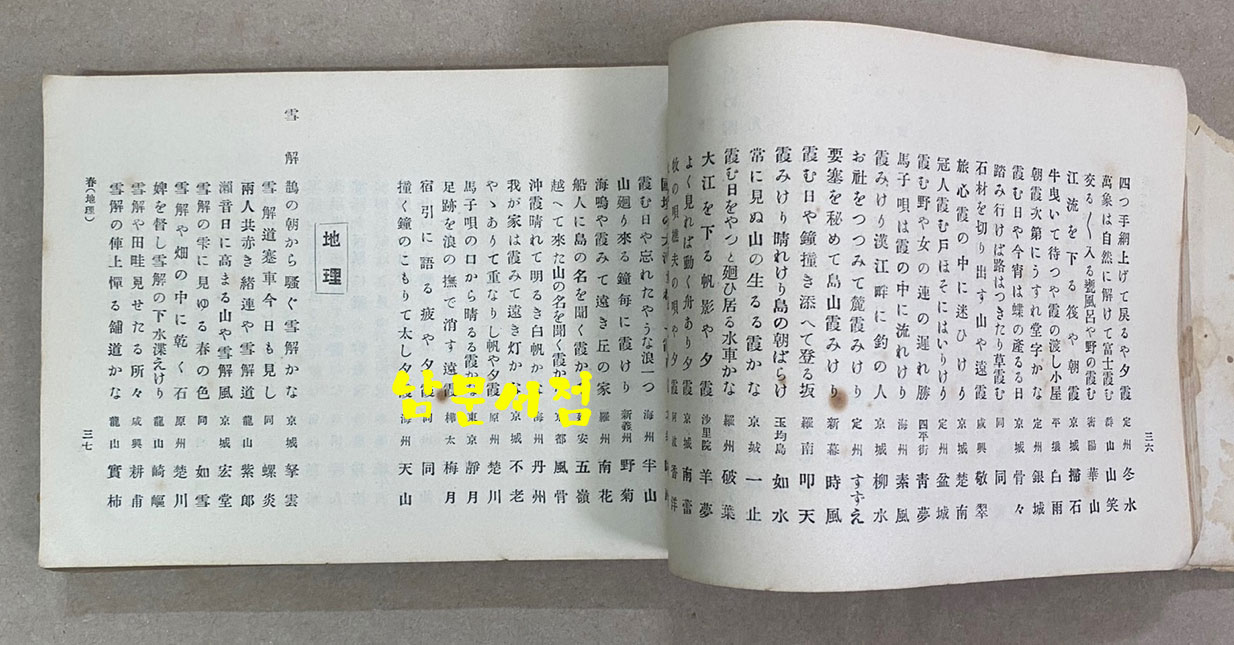 四つ手網上げて戻るや夕霞 定州 冬水
萬象は自然に解けて富士霞む 群山 山笑
交る〱入る甕風呂や野の霞む 密陽 華山
江流を下る筏や朝霞 京城 掃石
牛曳いて待つや霞の渡し小屋 平壤 白雨
朝霞次第にうすれ堂字かな 定州 銀城
霞む日や今宵は蝶の産るる日 京城 骨々
踏み行けば路はつきたり草霞む 同 同
石材を切り出す山や遠霞 咸興 敬翠
旅心霞の中に迷ひけり 京城 楚南
冠人霞む戸はそにはいりけり 定州 盆城
霞む野や女の連の遲れ勝 四平街 青夢
馬子唄は霞の中に流れけり 海州 素風
霞みけり漢江畔に釣の人 京城 柳水
お社をつつみて麓霞みけり 定州 すずえ
要塞を秘めて島山霞みけり 新幕 時風
霞む日や鐘撞き添へて登る坂 羅南 叩天
霞みけり晴れけり島の朝ばらけ 玉均島 如水
常に見ぬ山の生るる霞かな 京城 一止
霞む日をやつと廻ひ居る水車かな 羅州 破葉
大江を下る帆影や夕霞 沙里院 羊夢
よく見れば動く舟あり夕霞 京城 南雷
牧の唄樵夫の唄や夕霞
三六
霞む日や忘れたやうな浪一つ 海州 半山
山廻り來る鐘毎に霞けり 新義州 野菊
海鳴や霞みて遠き丘の家 羅州 南花
船人に島の名を聞く霞か 安 五嶺
越へて來た山の名を聞く霞か 京都 風骨
沖霞晴れて明るき白帆か 海州 丹州
我が家は霞みて遠き灯か 京城 不老
やゝありて重なりし帆や夕霞 原州 楚川
馬子唄の口から晴るる霞か 東京 靜月
足跡を浪の撫で消す遠霞 樺太 梅月
宿引に語る疲や夕霞 同 同
撞く鐘のこもりて太し夕霞 海州 天山
地理
雪解
鵲の朝から騷ぐ雪解かな 京城 拏雲
雪解道塞車今日も見し 同 螺炎
兩人共赤き緒連や雪解道 龍山 紫郎
瀬音日に高まる山や雪解風 京城 宏堂
雪解の雫に見ゆる春の色 同 如雪
雪解や畑の中に乾く石 原州 楚川
婢を督し雪解の下水渫えけり 龍山 崎嶇
雪解や田畦見せたる所々 咸興 耕甫
雪解の俥上憚る舗道かな 龍山 實柿
春(地理)
三七
남문서점